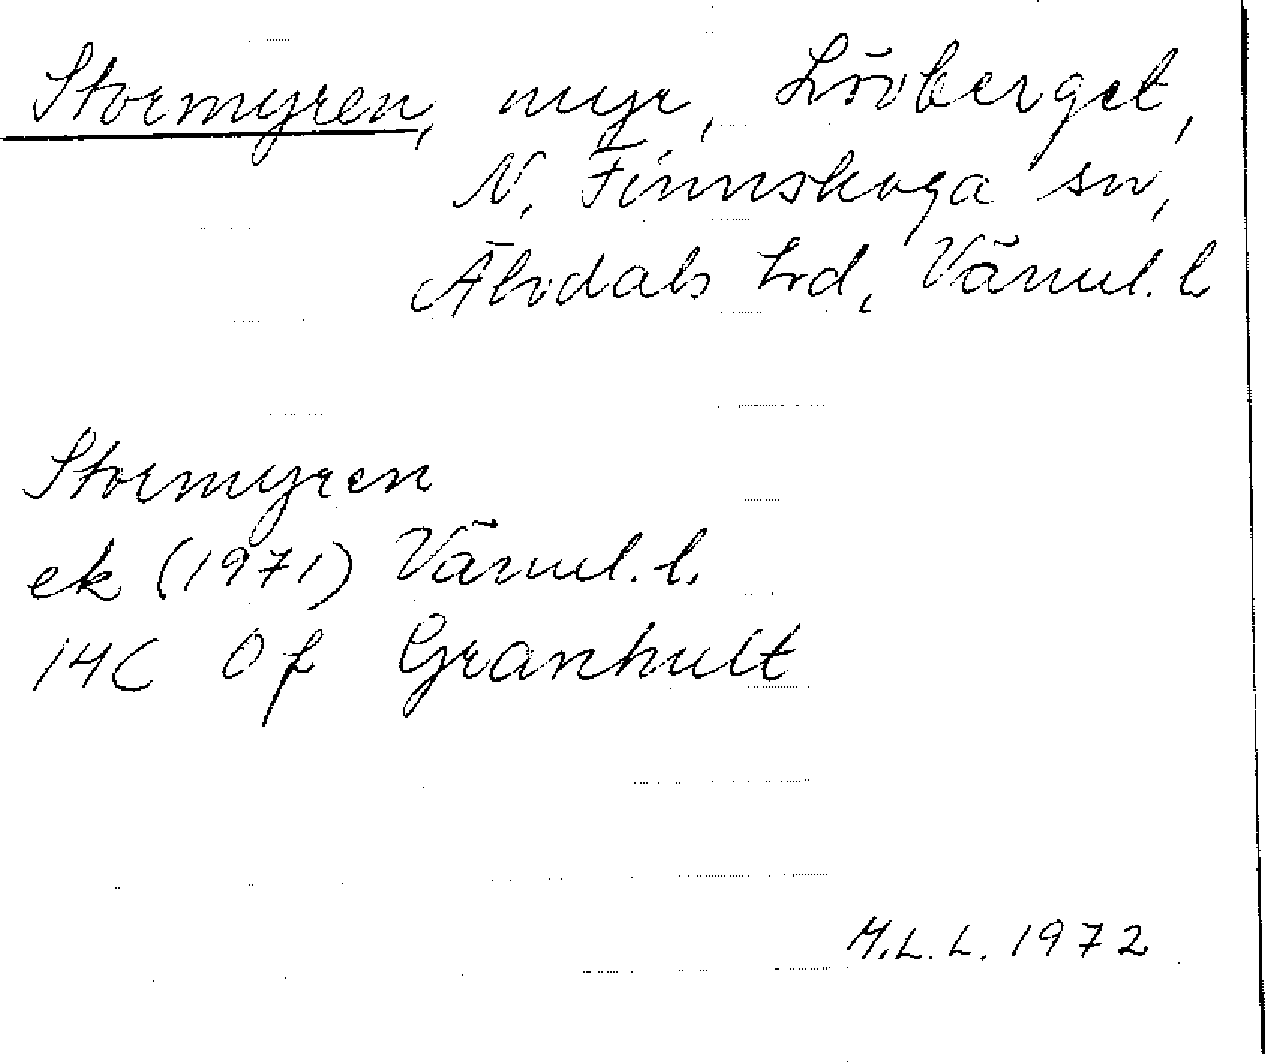 Stormyren, myr, Lövberget,
N. Finnskoga sn,
Älvdals hd, Värml. l
Stormyren
ek (1971) Värml. l.
14C 0f Granhult
M.L.L. 1972